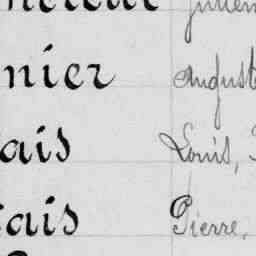 nier August
ais Louis,
ais Pierre,